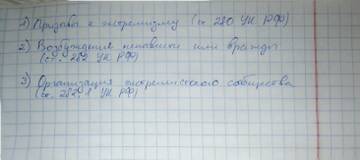 1) Призывы к экстремизму (ст 280 УК РФ)
2) Возбуждение ненависти или вражды
(ст. 282 УК РФ)
3) Организация экстремистского сообщества
(ст. 282, 1 УК РФ)